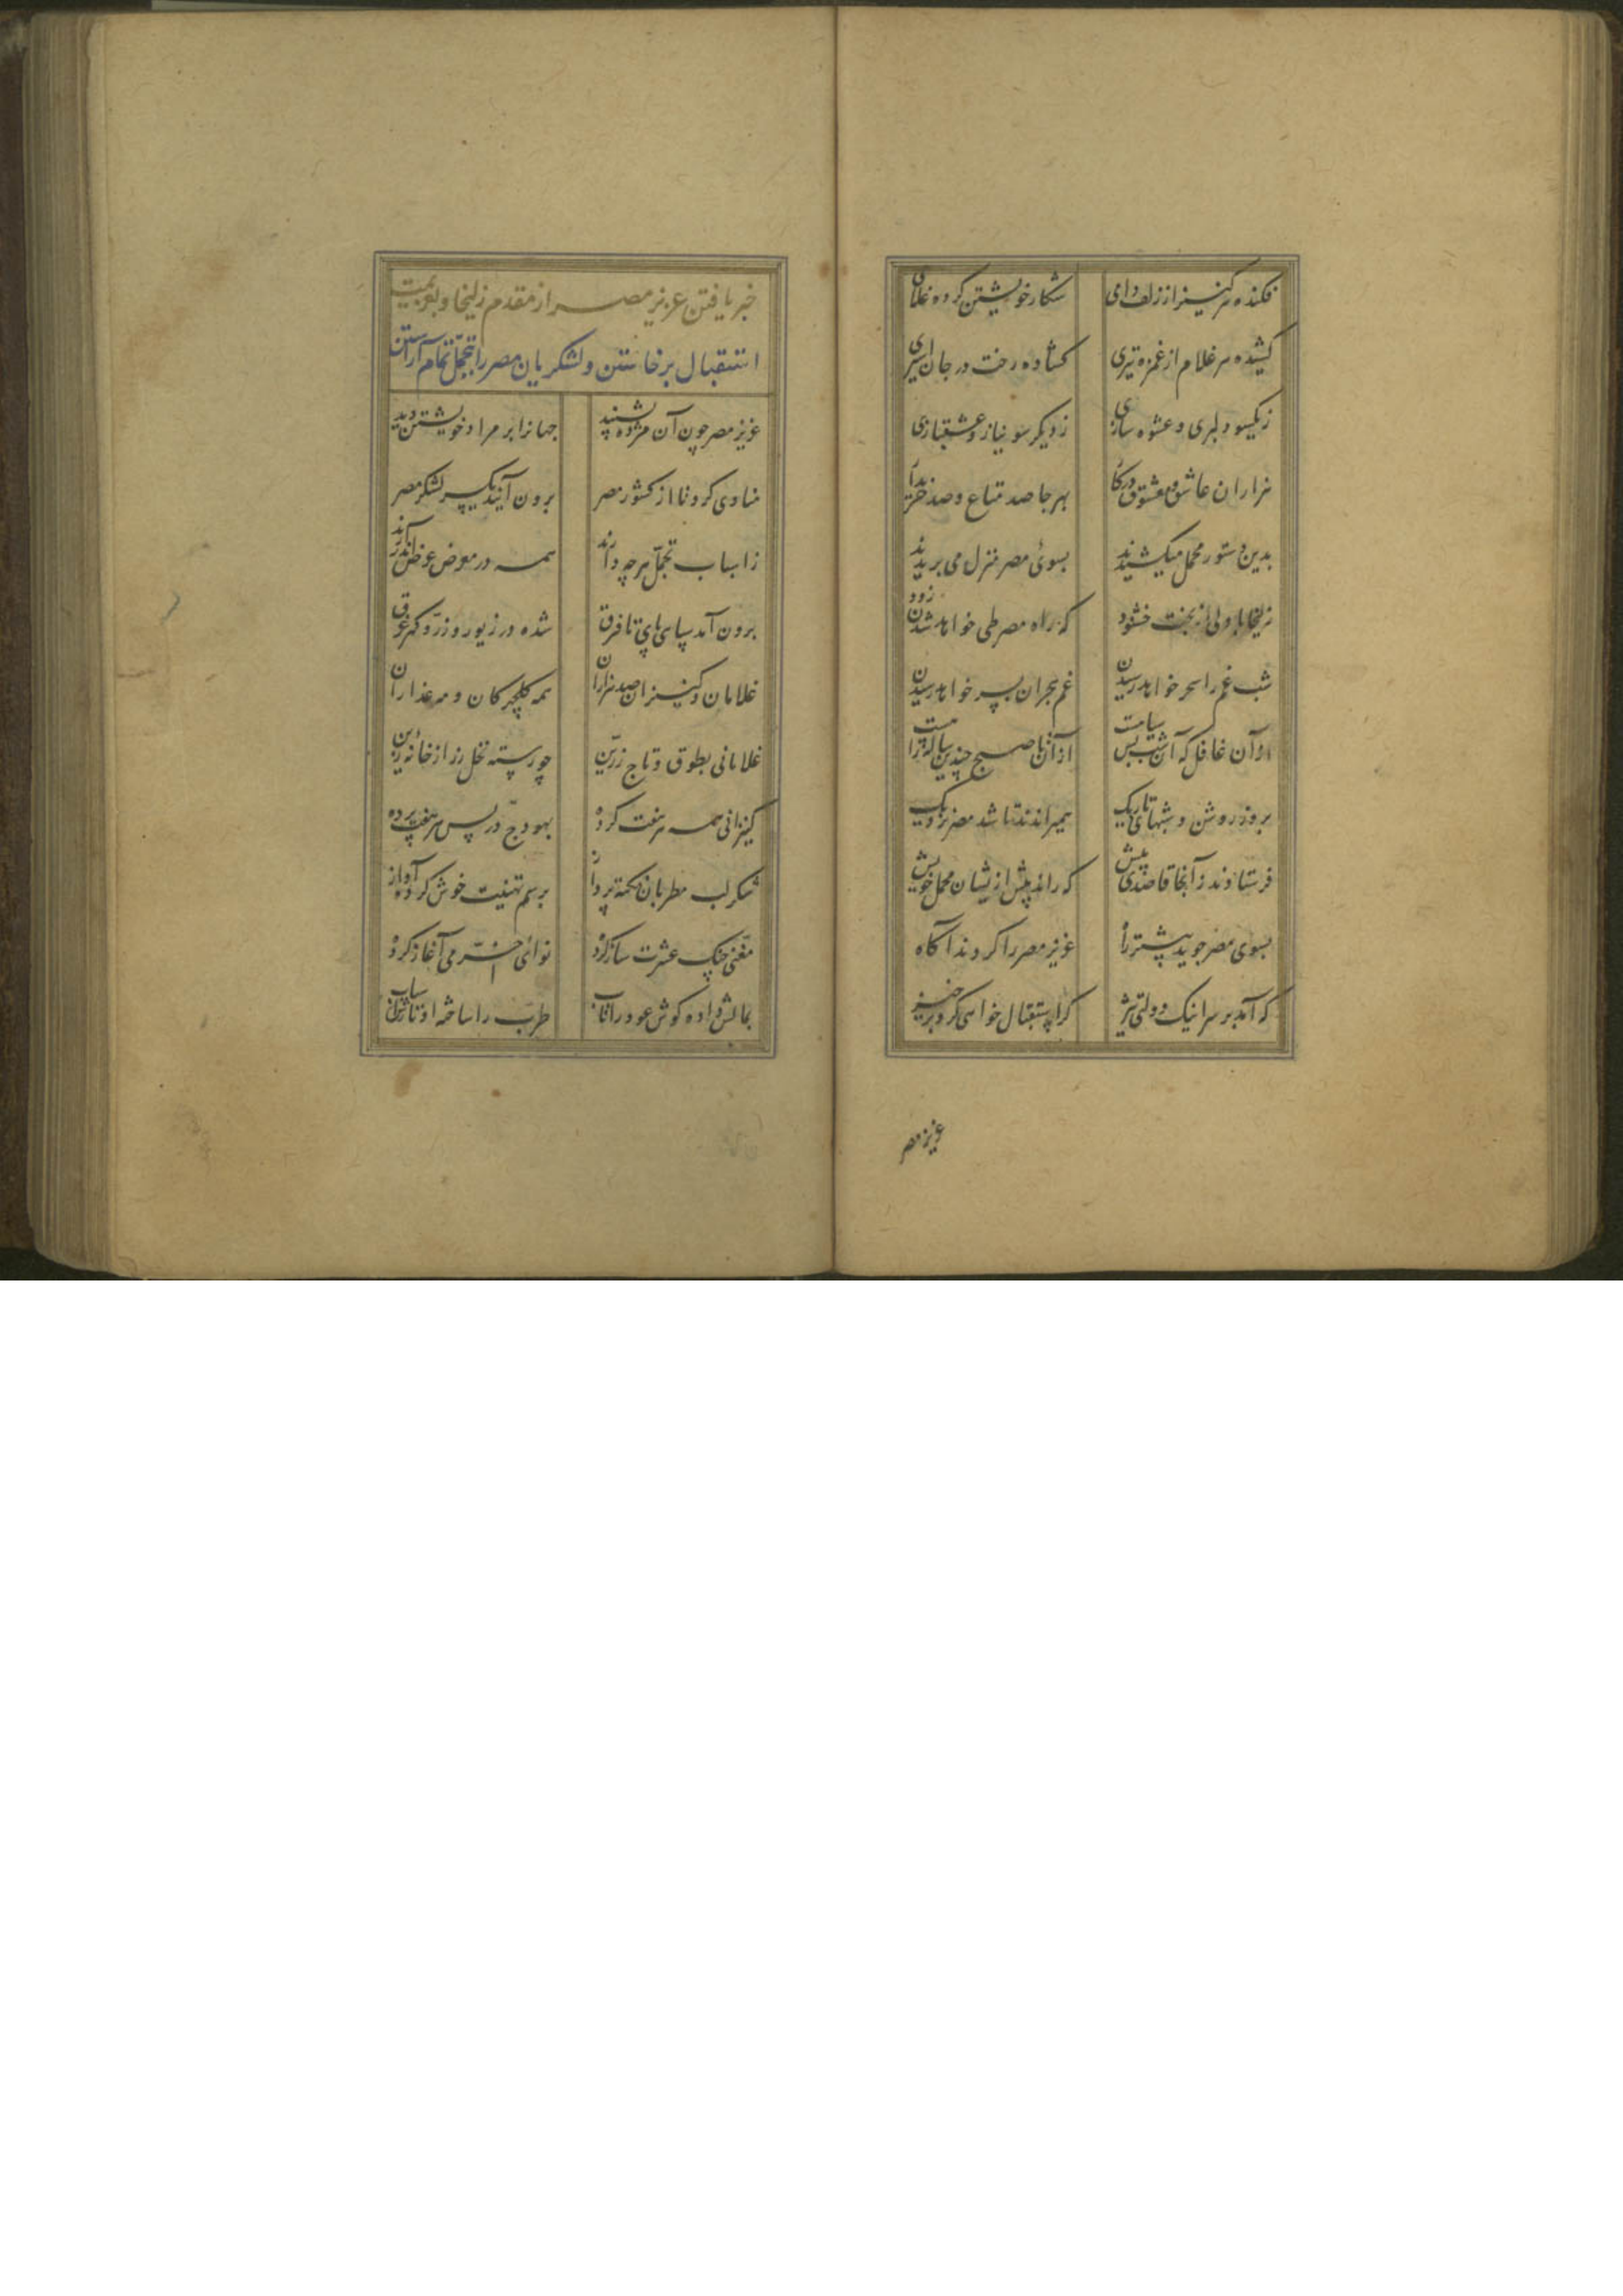 فکنده هر کنیز از زلف دامی شکار خویشتن کرده غلامی
کشیده هر غلام از غمزه تیری کشاده رخت در جان اسیری
ز یکسو دلبری و عشوه سازی ز دیگر سو نیاز و عشقبازی
هزاران عاشق و معشوق در کار بهر جا صد متاع و صد خریدار
بدین دستور محمل میکشیدند بسوئ مصر منزل می بریدند
زلیخا با دلی از بخت خشنود که راه مصر طی خواهد شدن زود
شب غم را سحر خواهد رسیدن غم هجران بسر خواهد رسیدن
از آن غافل که آن شب بس سیاهست از آن تا صبح چندین ساله راهست
بروز روشن و شبهای تاریک همیراندند تا شد مصر نزدیک
فرستادند ز آنجا قاصدی پیش که راند پیش ازیشان محمل خویش
بسوی مصر جوید پیشتر راه عزیز مصر را کردند آگاه
که آمد بر سر اینک دولت تیز گر استقبال خواهی کرد برخیز
عزیز مصر
خبر یافتن عزیز مصر از مقدم زلیخا و بعزیمت
استقبال برخاستن و لشکریان مصر را بتجمل تمام آراستن
عزیز مصر چون آن مژده بشنید جهانرا بر مراد خویشتن دید
منادی کرد تا از کشور مصر برون آیند یکسر لشکر مصر
ز اسباب تجمل هر چه دارند همه در معرض عرض اندر آرند
برون آمد سپاهی پای تا فرق شده در زیور و زر و گهر غرق
غلامان و کنیزان صد هزاران همه گلچهرگان و مه عذاران
غلامانی بطوق و تاج زرین چو رسته نخل زر از خانه زین
کنیزانی همه هر هفت کرده بهودج در پس هر هفت پرده
شکر لب مطربان نکته پرداز برسم تهنیت خوش کرده آواز
مغنی چنگ عشرت ساز کرده نوائ خرمی آغاز کرده
بمالش داده گوش عود را تاب طرب را ساخته او تارش اسباب